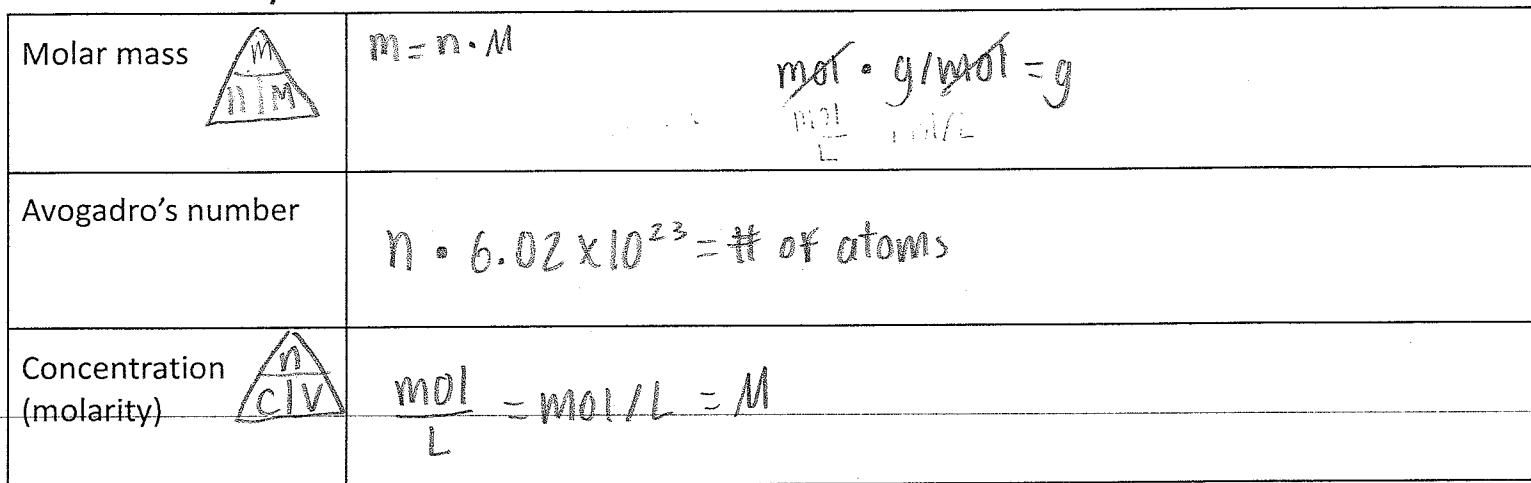 Molar mass
m
n | M
m = n · M
mol · g/mol = g
mol
L
Avogadro's number
n · 6.02 x 10²³ = # of atoms
Concentration
(molarity)
n
C | V
mol
L
= mol/L = M